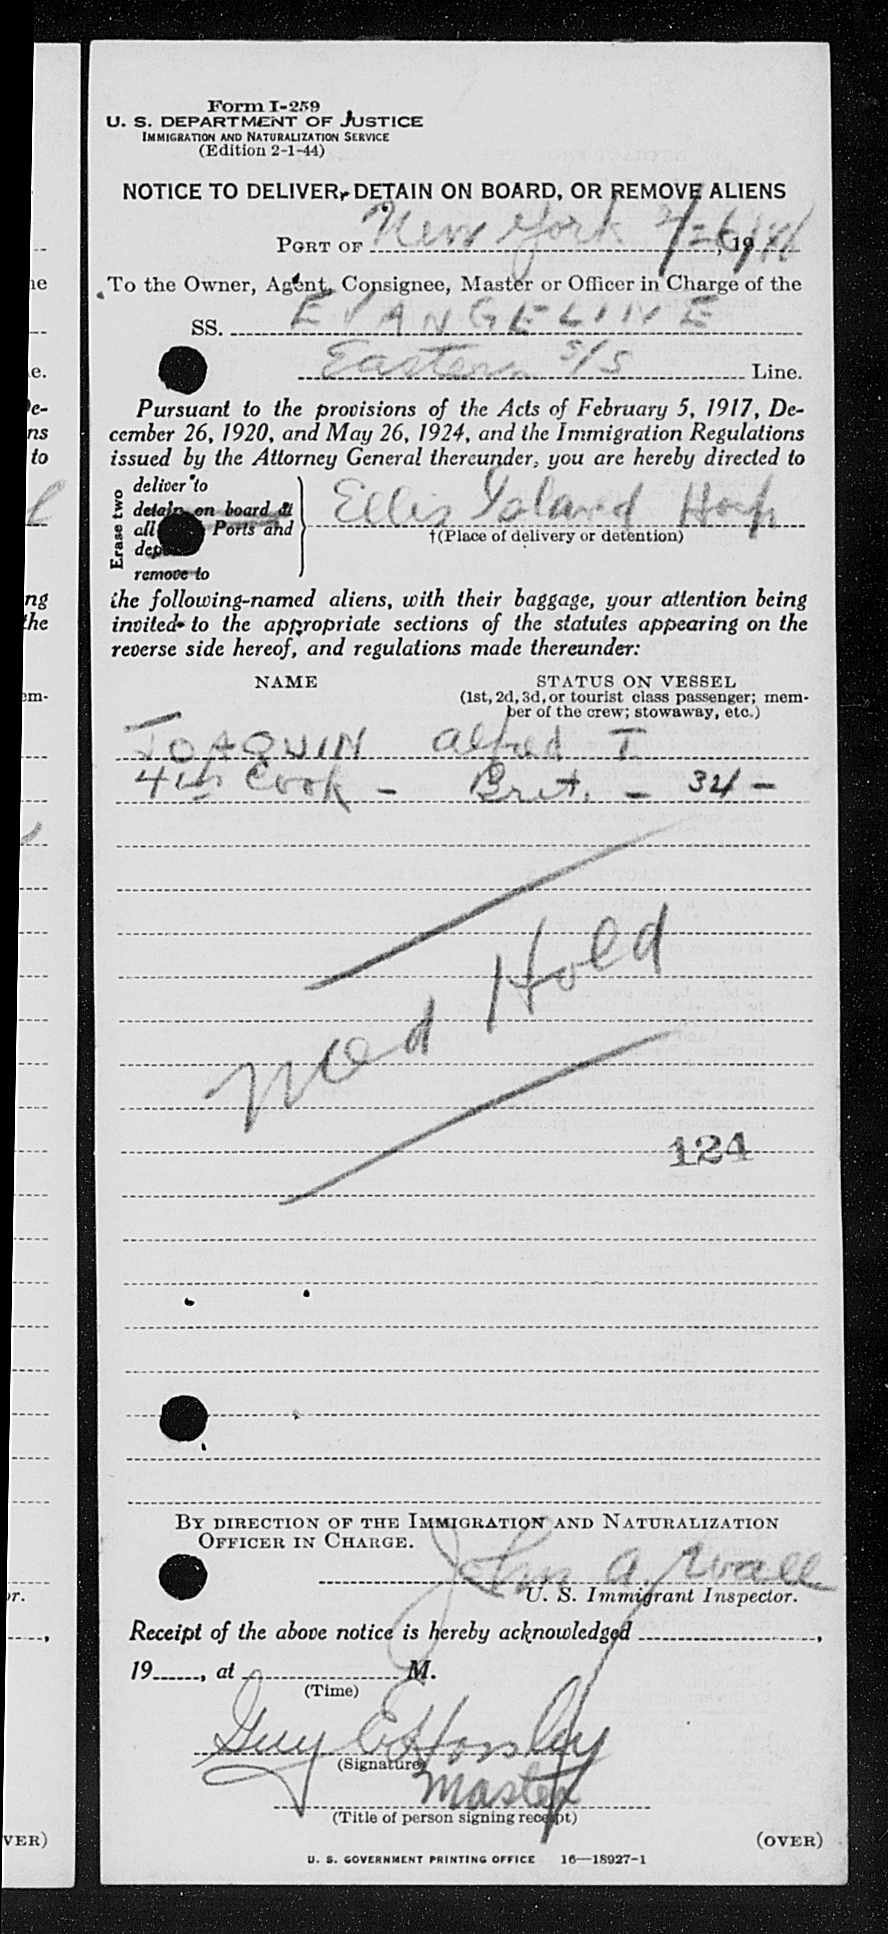 Form I-259
U. S. DEPARTMENT OF JUSTICE
IMMIGRATION AND NATURALIZATION SERVICE
(Edition 2-1-44)
NOTICE TO DELIVER, DETAIN ON BOARD, OR REMOVE ALIENS
PORT OF New York 2/26/, 19
To the Owner, Agent, Consignee, Master or Officer in Charge of the
SS. EVANGELINE
Eastern S/S Line.
Pursuant to the provisions of the Acts of February 5, 1917, De-
cember 26, 1920, and May 26, 1924, and the Immigration Regulations
issued by the Attorney General thereunder, you are hereby directed to
Erase two
deliver to
detain on board at
all Ports and
remove to
Ellis Island Hosp
†(Place of delivery or detention)
the following-named aliens, with their baggage, your attention being
invited to the appropriate sections of the statutes appearing on the
reverse side hereof, and regulations made thereunder:
NAME STATUS ON VESSEL
(1st, 2d, 3d, or tourist class passenger; mem-
ber of the crew; stowaway, etc.)
JOAQUIN Alfred I
4th Cook - Brit. - 34 -
Med Hold
124
BY DIRECTION OF THE IMMIGRATION AND NATURALIZATION
OFFICER IN CHARGE.
John A. Wall
U. S. Immigrant Inspector.
Receipt of the above notice is hereby acknowledged ,
19 , at M.
(Time)
Guy E
(Signature)
Master
(Title of person signing receipt)
(OVER)
U. S. GOVERNMENT PRINTING OFFICE 16—18927-1